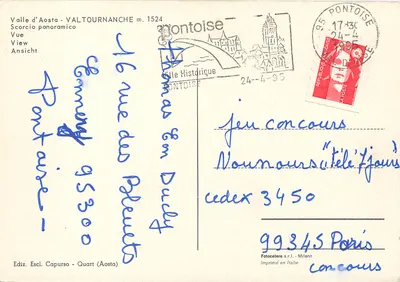 Valle d'Aosta - VALTOURNANCHE m. 1524
Scorcio panoramico
Vue
View
Ansicht
Pontoise
Ville Historique
PONTOISE
24-4-95
95 PONTOISE
17H
24-4
Thomas Eon Ducly
16 rue des Bleuets
Ennery 95300
Pontoise -
jeu concours
Nounours "Télé 7 jours"
cedex 3450
99345 Paris
concours
Ediz. Escl. Capurso - Quart (Aosta)
Fotocelere s.r.l. - Milano
Imprimé en Italie